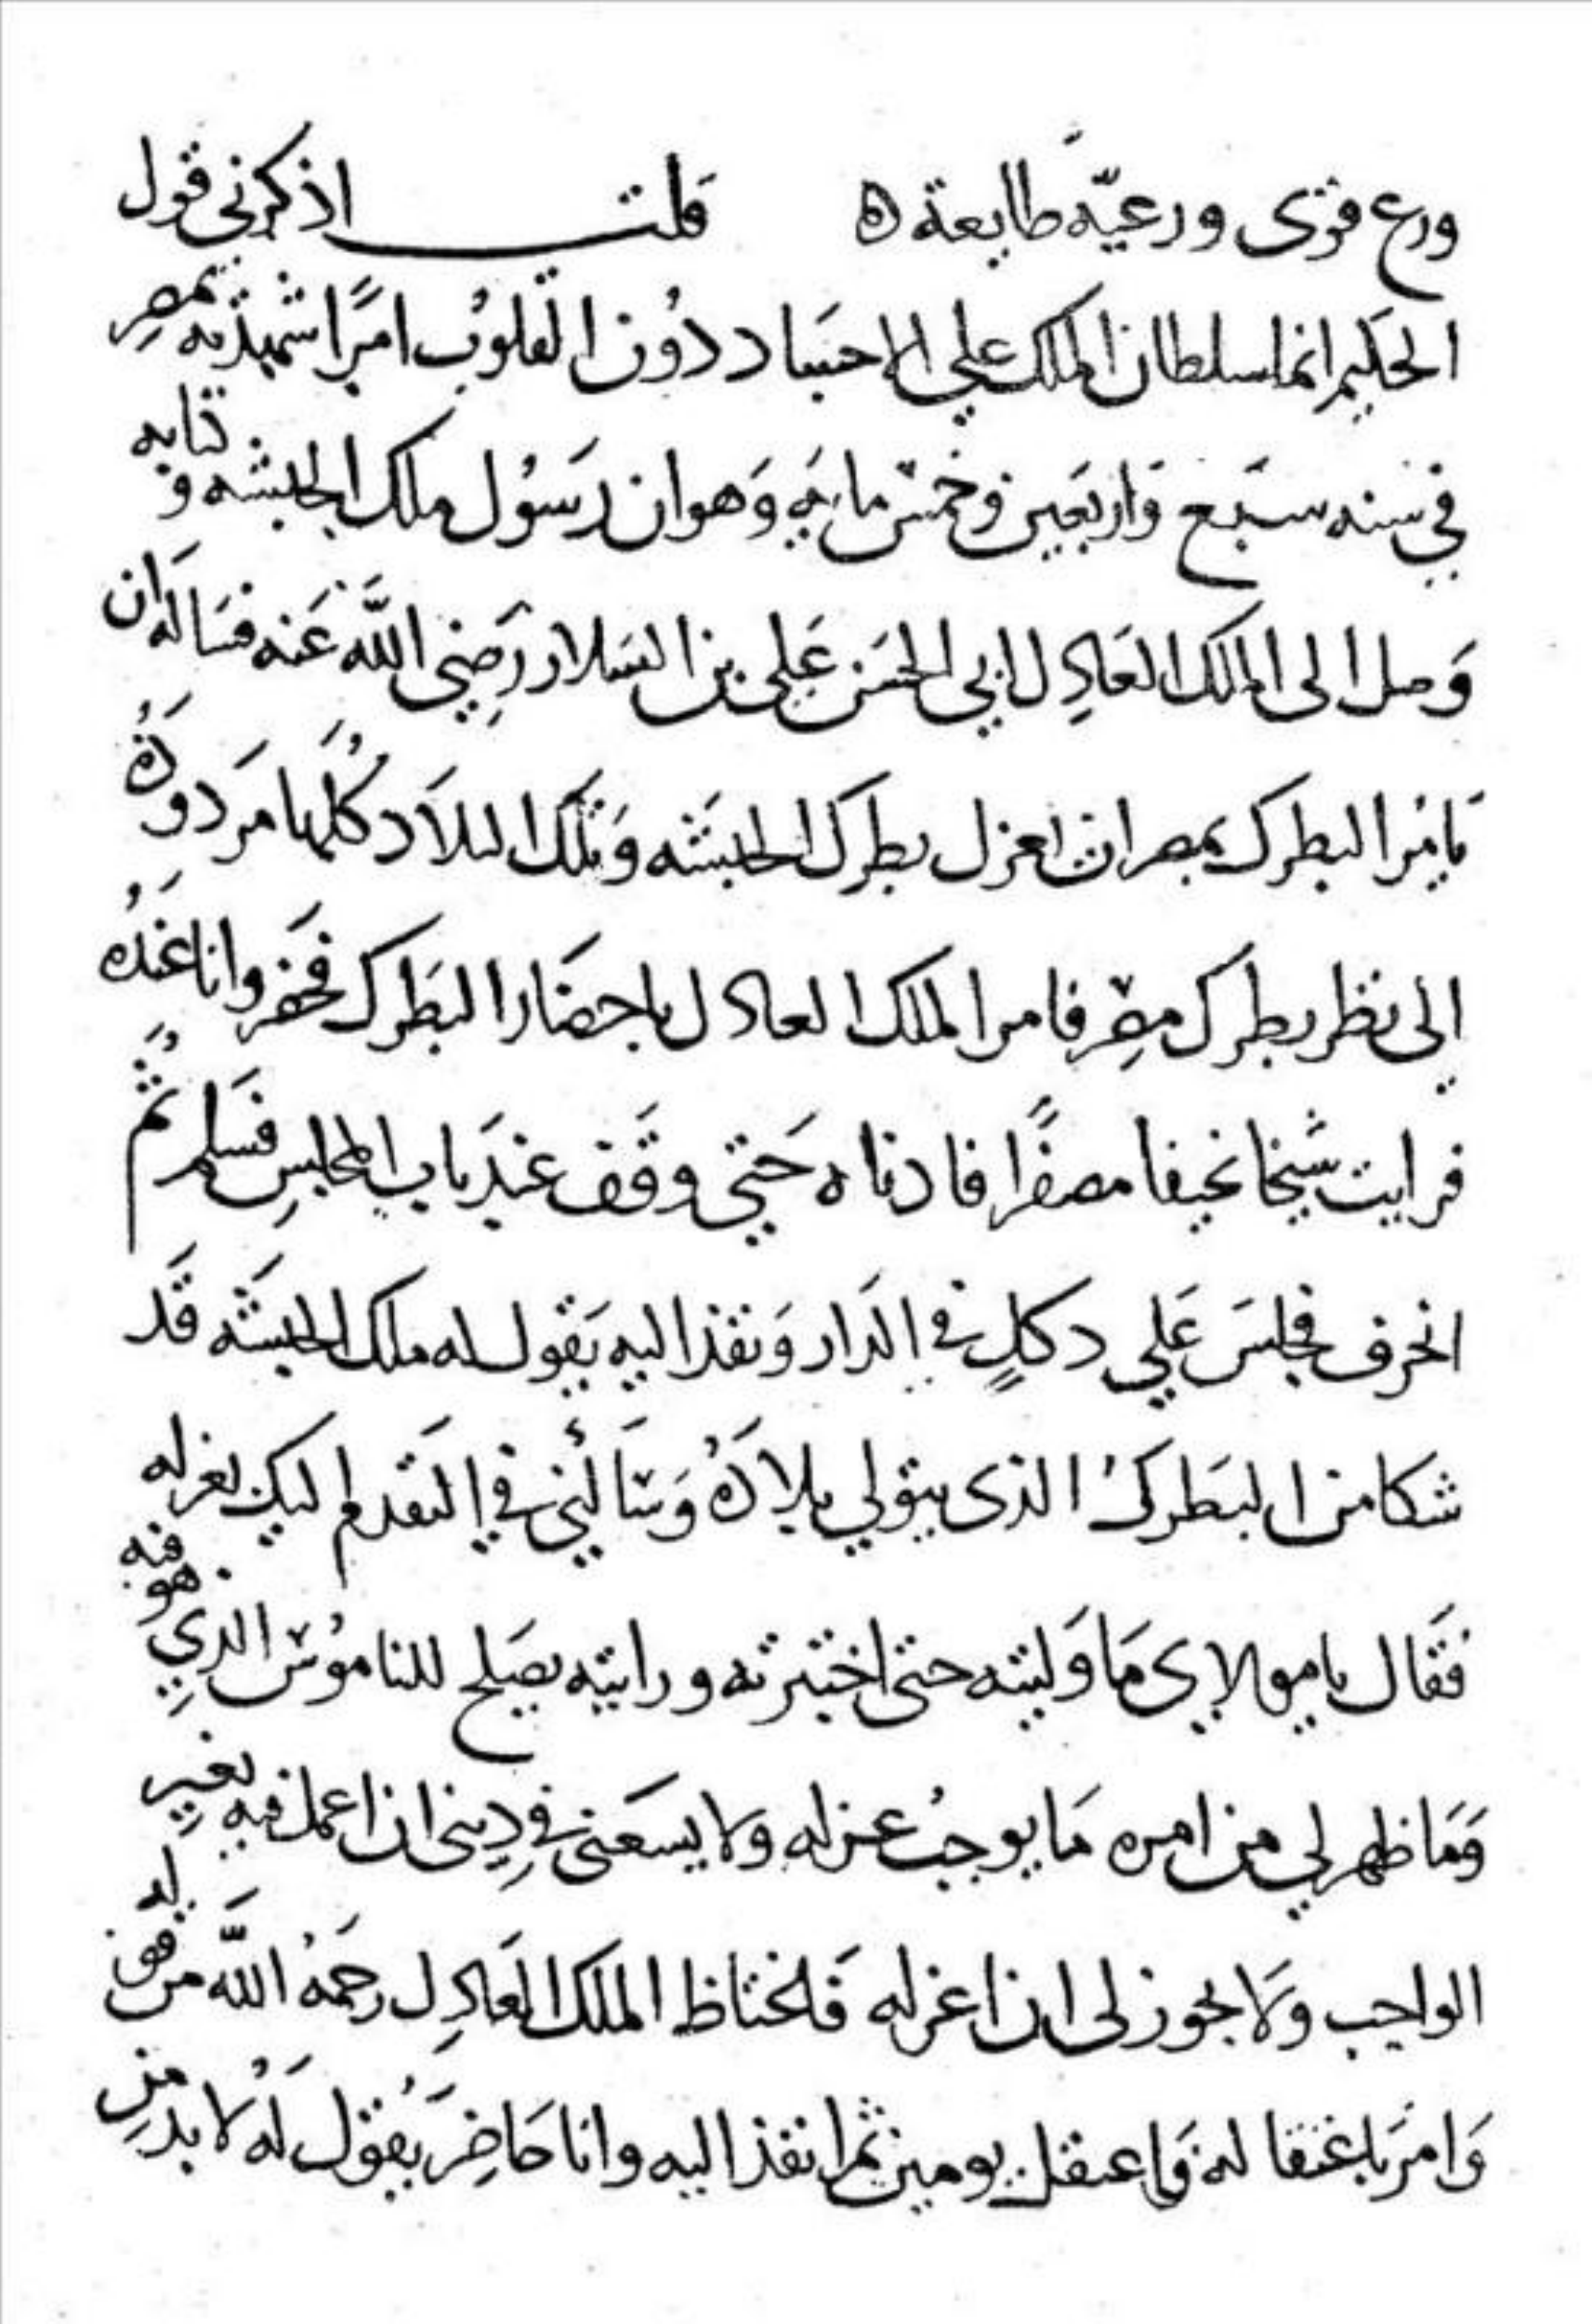 ورع قوي ورعيّه طايعة ه قلت اذكرني قول
الحكيم انما سلطان الملك علي الاجساد دون القلوب امرًا شهدته بمصر
في سنه سبع واربعين وخمس مايه وهو ان رسول ملك الحبشه وكتابه
وصل الى الملك العادل ابي الحسن علي بن السلار رضي الله عنه فساله ان
يامر البطرك بمصر ان اعزل بطرك الحبشه وتلك البلاد كلها مردودة
الى نظر بطرك مصر فامر الملك العادل باحضار البطرك فحضر وانا عنده
فرايت شيخا نحيفا مصفرًا فادناه حتي وقف عند باب المجلس فسلم ثم
انحرف فجلس علي دكل في الدار ونفذ اليه يقول له ملك الحبشه قد
شكا من البطرك الذي يتولي بلاده وسالني في التقدم اليك بعزله
فقال يا مولاي ما وليته حتى اختبرته ورايته يصلح للناموس الذي هو فيه
وما ظهر لي من امره ما يوجب عزله ولا يسعني في ديني ان اعمل فيه بغير
الواجب ولا يجوز لي ان اعزله فاختاظ الملك العادل رحمه الله من قوله
وامر باعتقاله فاعتقل يومين ثم انفذ اليه وانا حاضر يقول له لا بد من